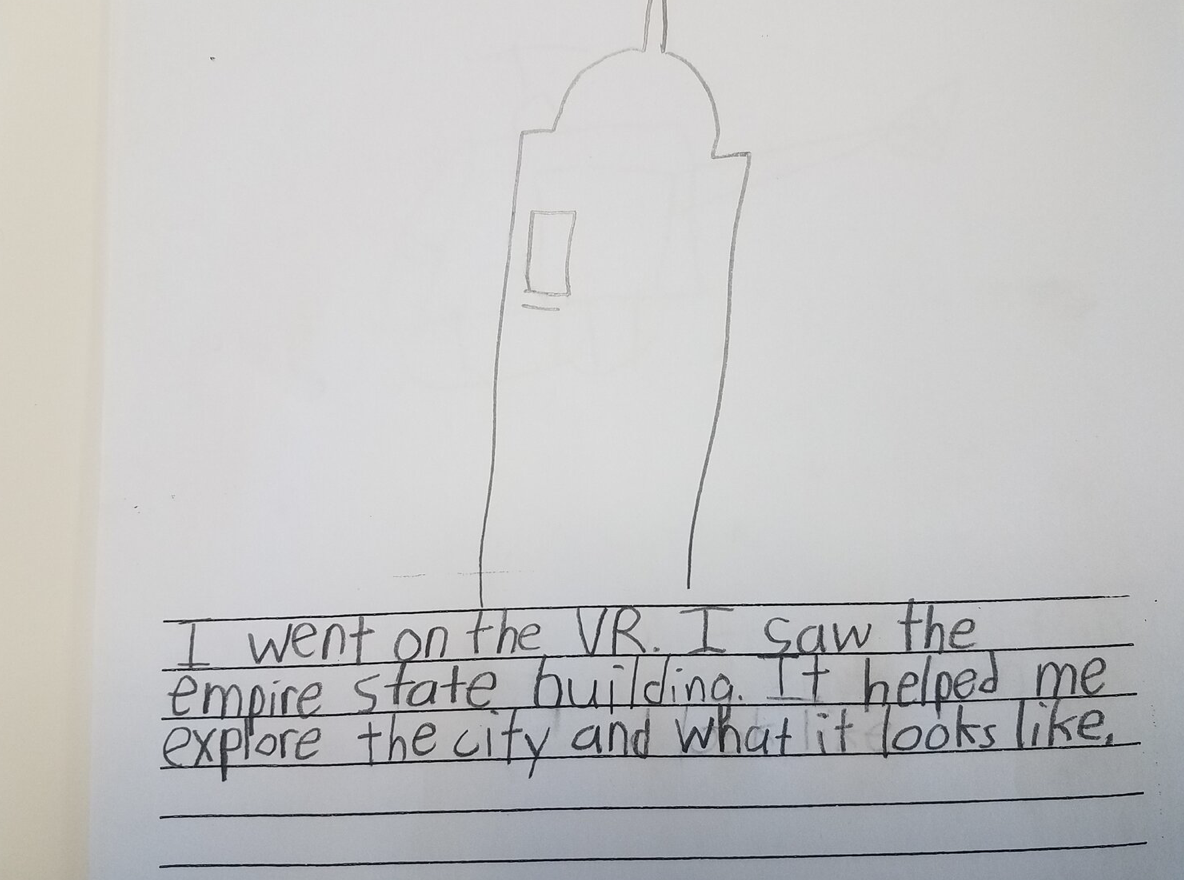 I went on the VR. I saw the
empire state building. It helped me
explore the city and what it looks like.